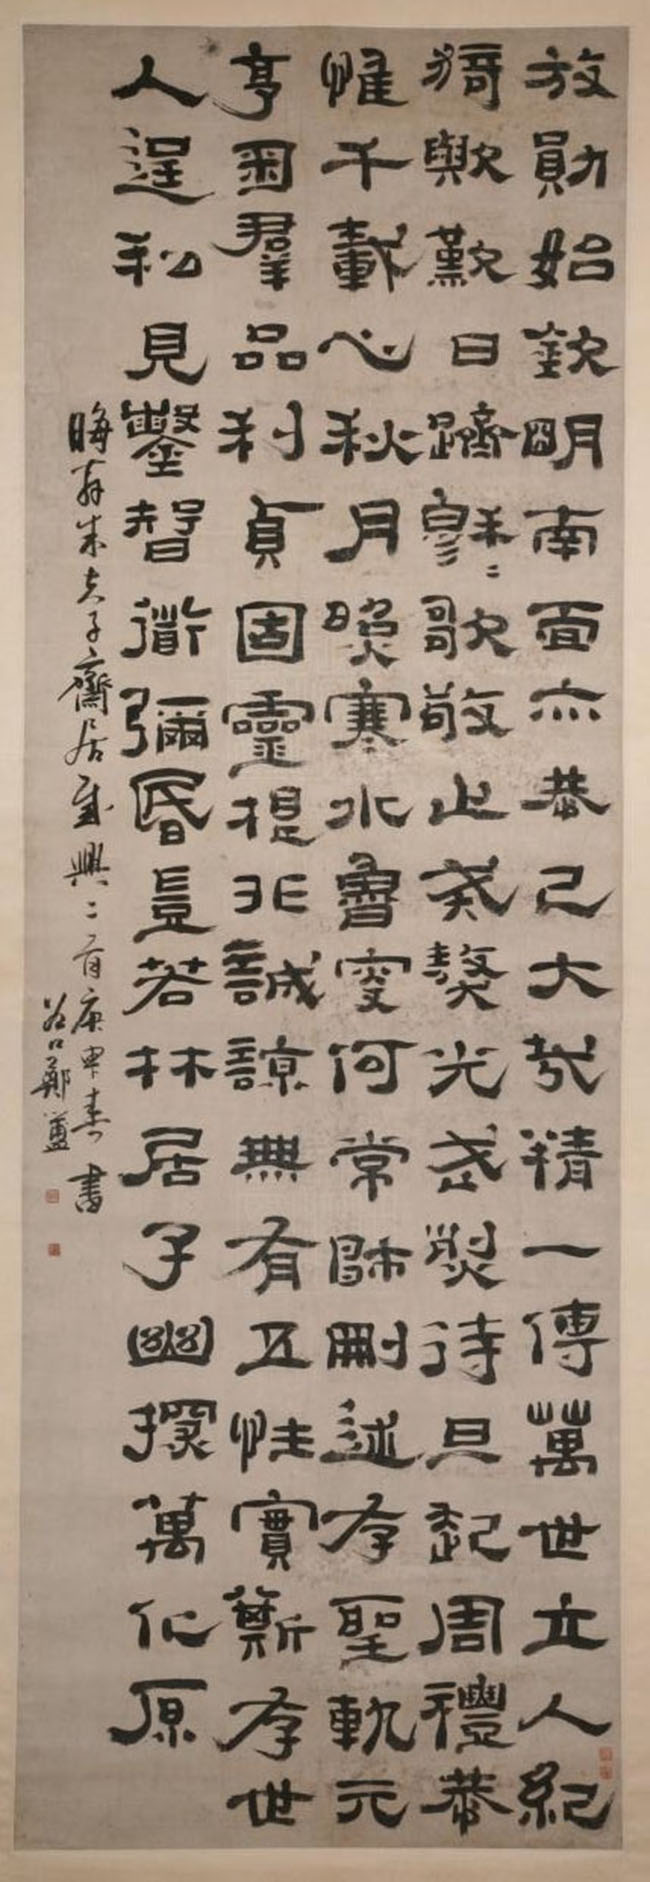 放勛始欽明南面亦恭己大哉精一傳萬世立人紀
猗歟歎日躋穆〻歌敬止戒獒光武烈待旦起周禮恭
惟千載心秋月照寒水魯叟何常師刪述存聖軌元
亨播羣品利貞固靈根非誠諒無有五性實斯存世
人逞私見鑿智衜彌昏豈若林居子幽探萬化原
晦菴朱夫子齋居感興二首庚申春書
谷口鄭簠